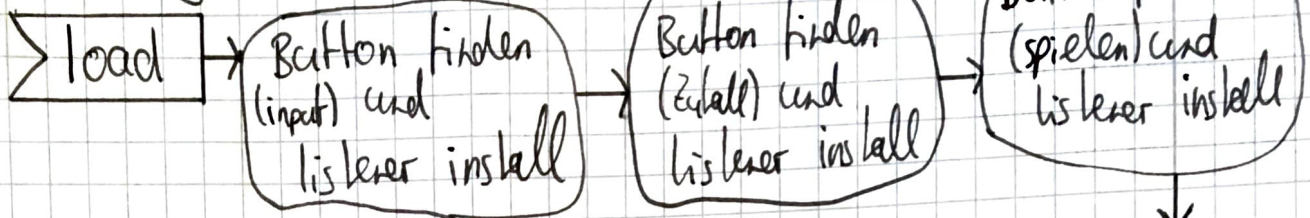 load
Button finden
(input) und
listener install
Button finden
(Zufall) und
listener install
(spielen) und
listener install